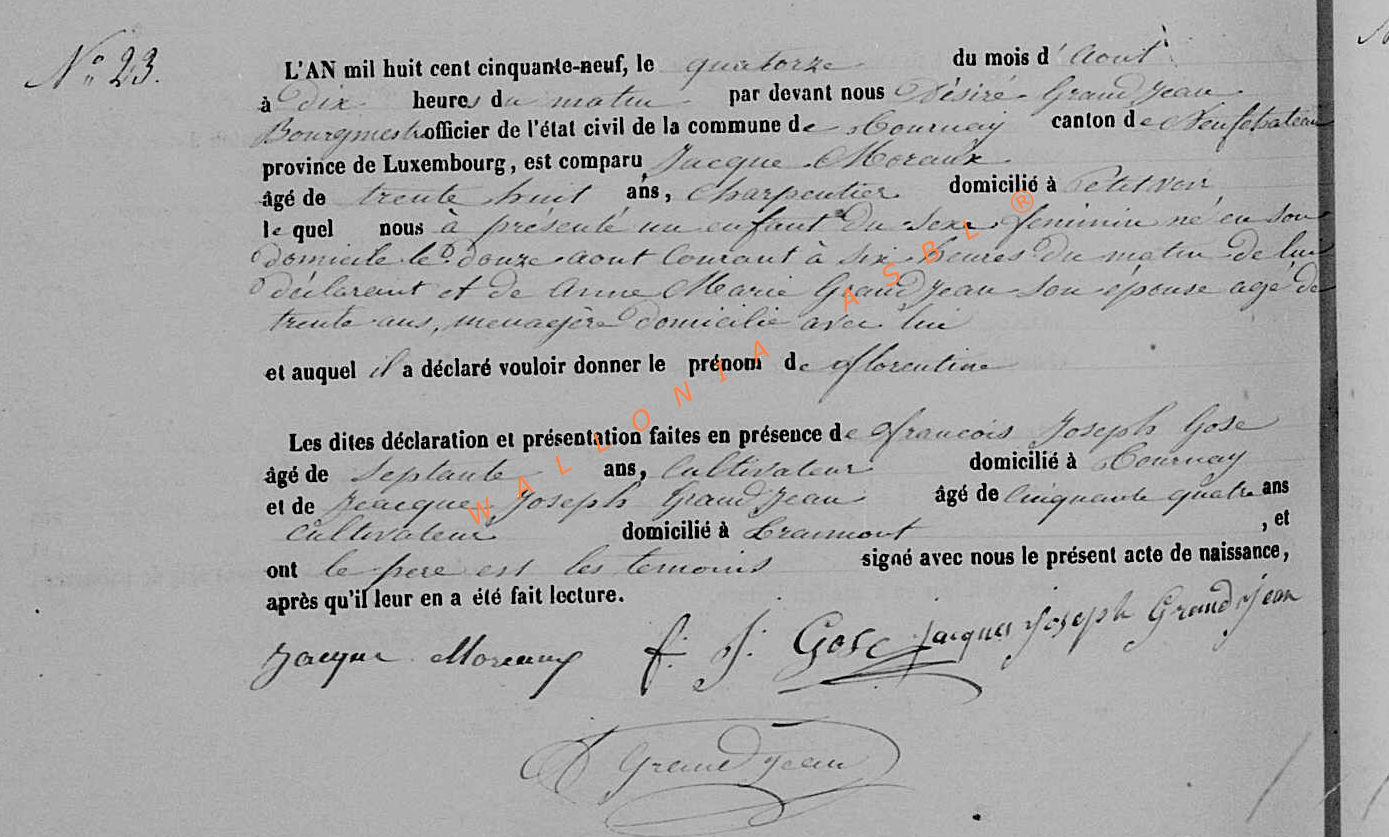 N° 23.
L'AN mil huit cent cinquante-neuf, le quatorze du mois d'Aout
à dix heures du matin par devant nous Désiré Grandjean
Bourgmestre officier de l'état civil de la commune de Tournay canton de Neufchateau
province de Luxembourg, est comparu Jacque Moraux
âgé de trente huit ans, charpentier domicilié à Petitvoir
le quel nous à présenté un enfant du sexe feminin né en son
domicile le douze aout courant à six heures du matin de lui
déclarant et de Anne Marie Grandjean son épouse agé de
trente ans, menagère domicilié avec lui
et auquel il a déclaré vouloir donner le prénom de florentine
Les dites déclaration et présentation faites en présence de francois Joseph Gose
âgé de septante ans, cultivateur domicilié à Tournay
et de Jacque Joseph Grandjean âgé de cinquante quatre ans
cultivateur domicilié à Tramont , et
ont le pere est les temoins signé avec nous le présent acte de naissance,
après qu'il leur en a été fait lecture.
Jacque Moraux f. J. Gose Jacques Joseph Grandjean
D Grandjean
WALLONIA ASBL ®